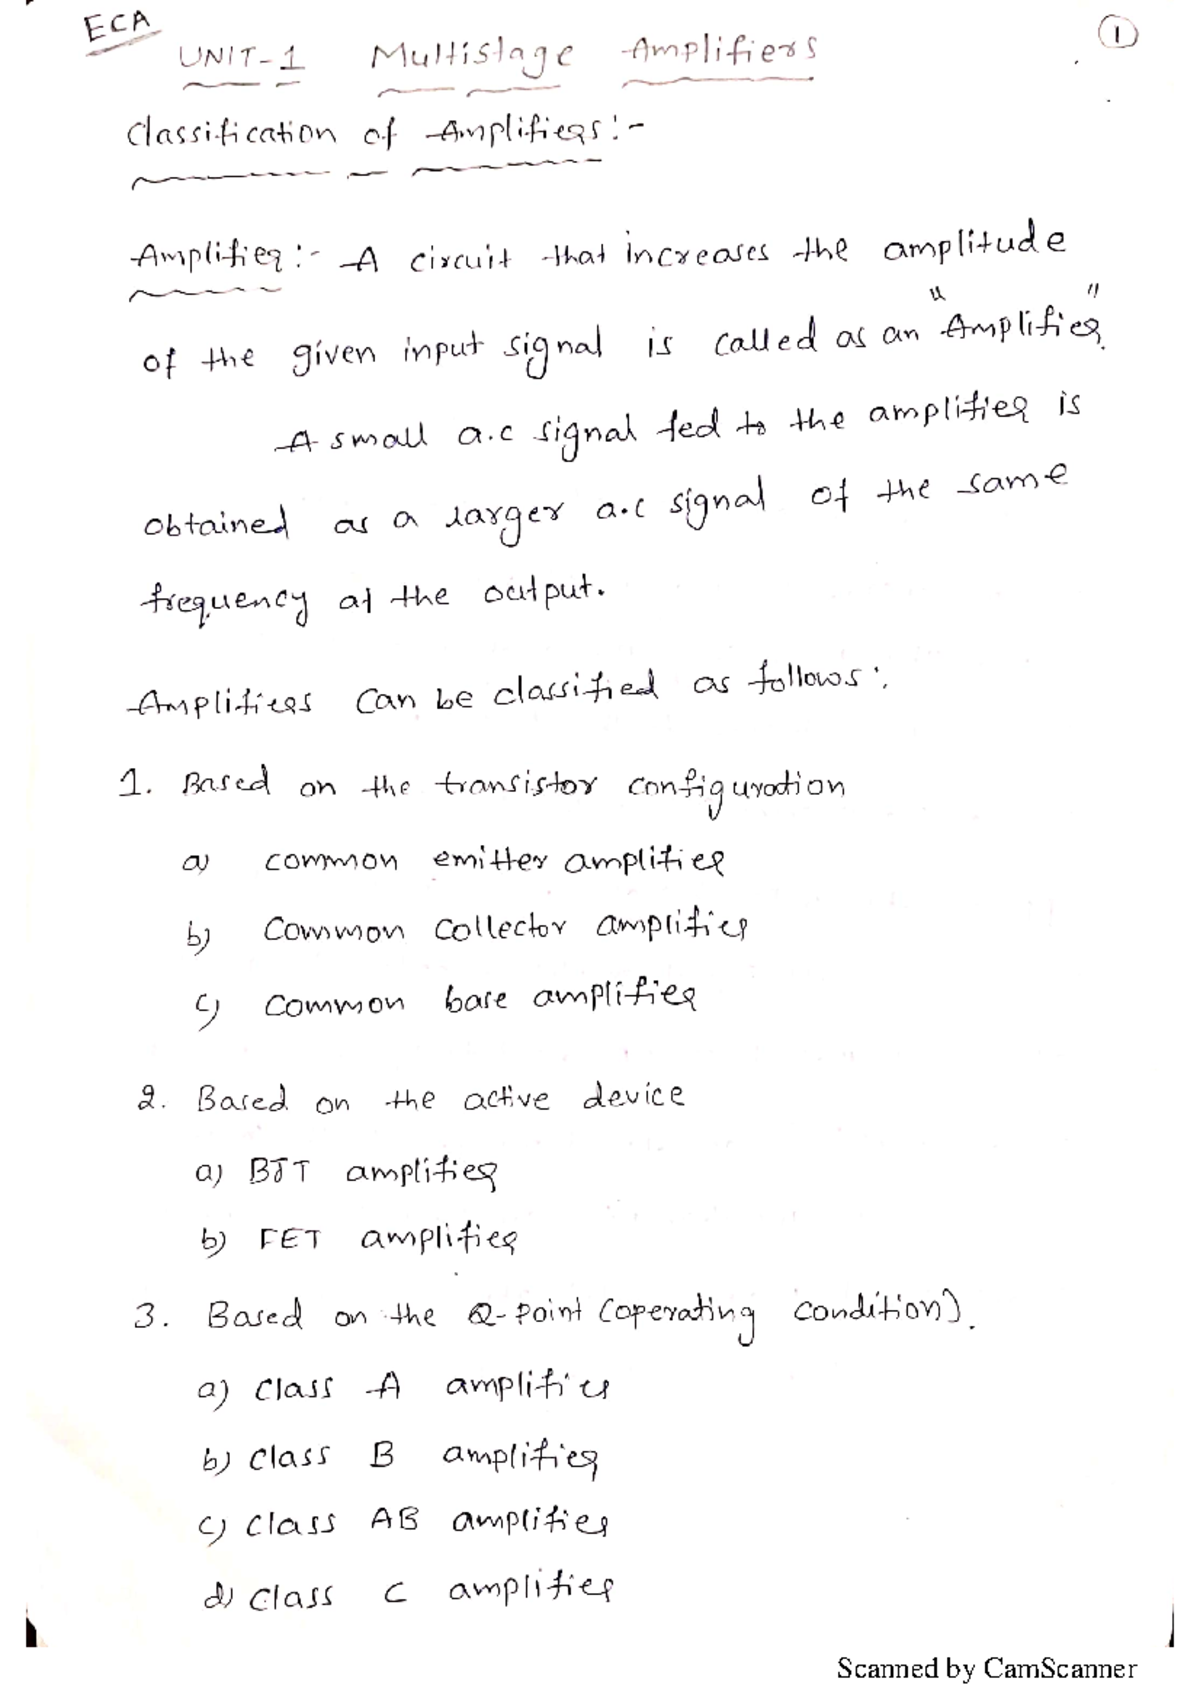 ECA
1
UNIT-1 Multistage Amplifiers
Classification of Amplifiers:-
Amplifier:- A circuit that increases the amplitude
of the given input signal is called as an "Amplifier".
A small a.c signal fed to the amplifier is
obtained as a larger a.c signal of the same
frequency at the output.
Amplifiers can be classified as follows:
1. Based on the transistor configuration
a) common emitter amplifier
b) Common collector amplifier
c) common base amplifier
2. Based on the active device
a) BJT amplifier
b) FET amplifier
3. Based on the Q-point (operating condition).
a) class A amplifier
b) class B amplifier
c) class AB amplifier
d) class C amplifier
Scanned by CamScanner